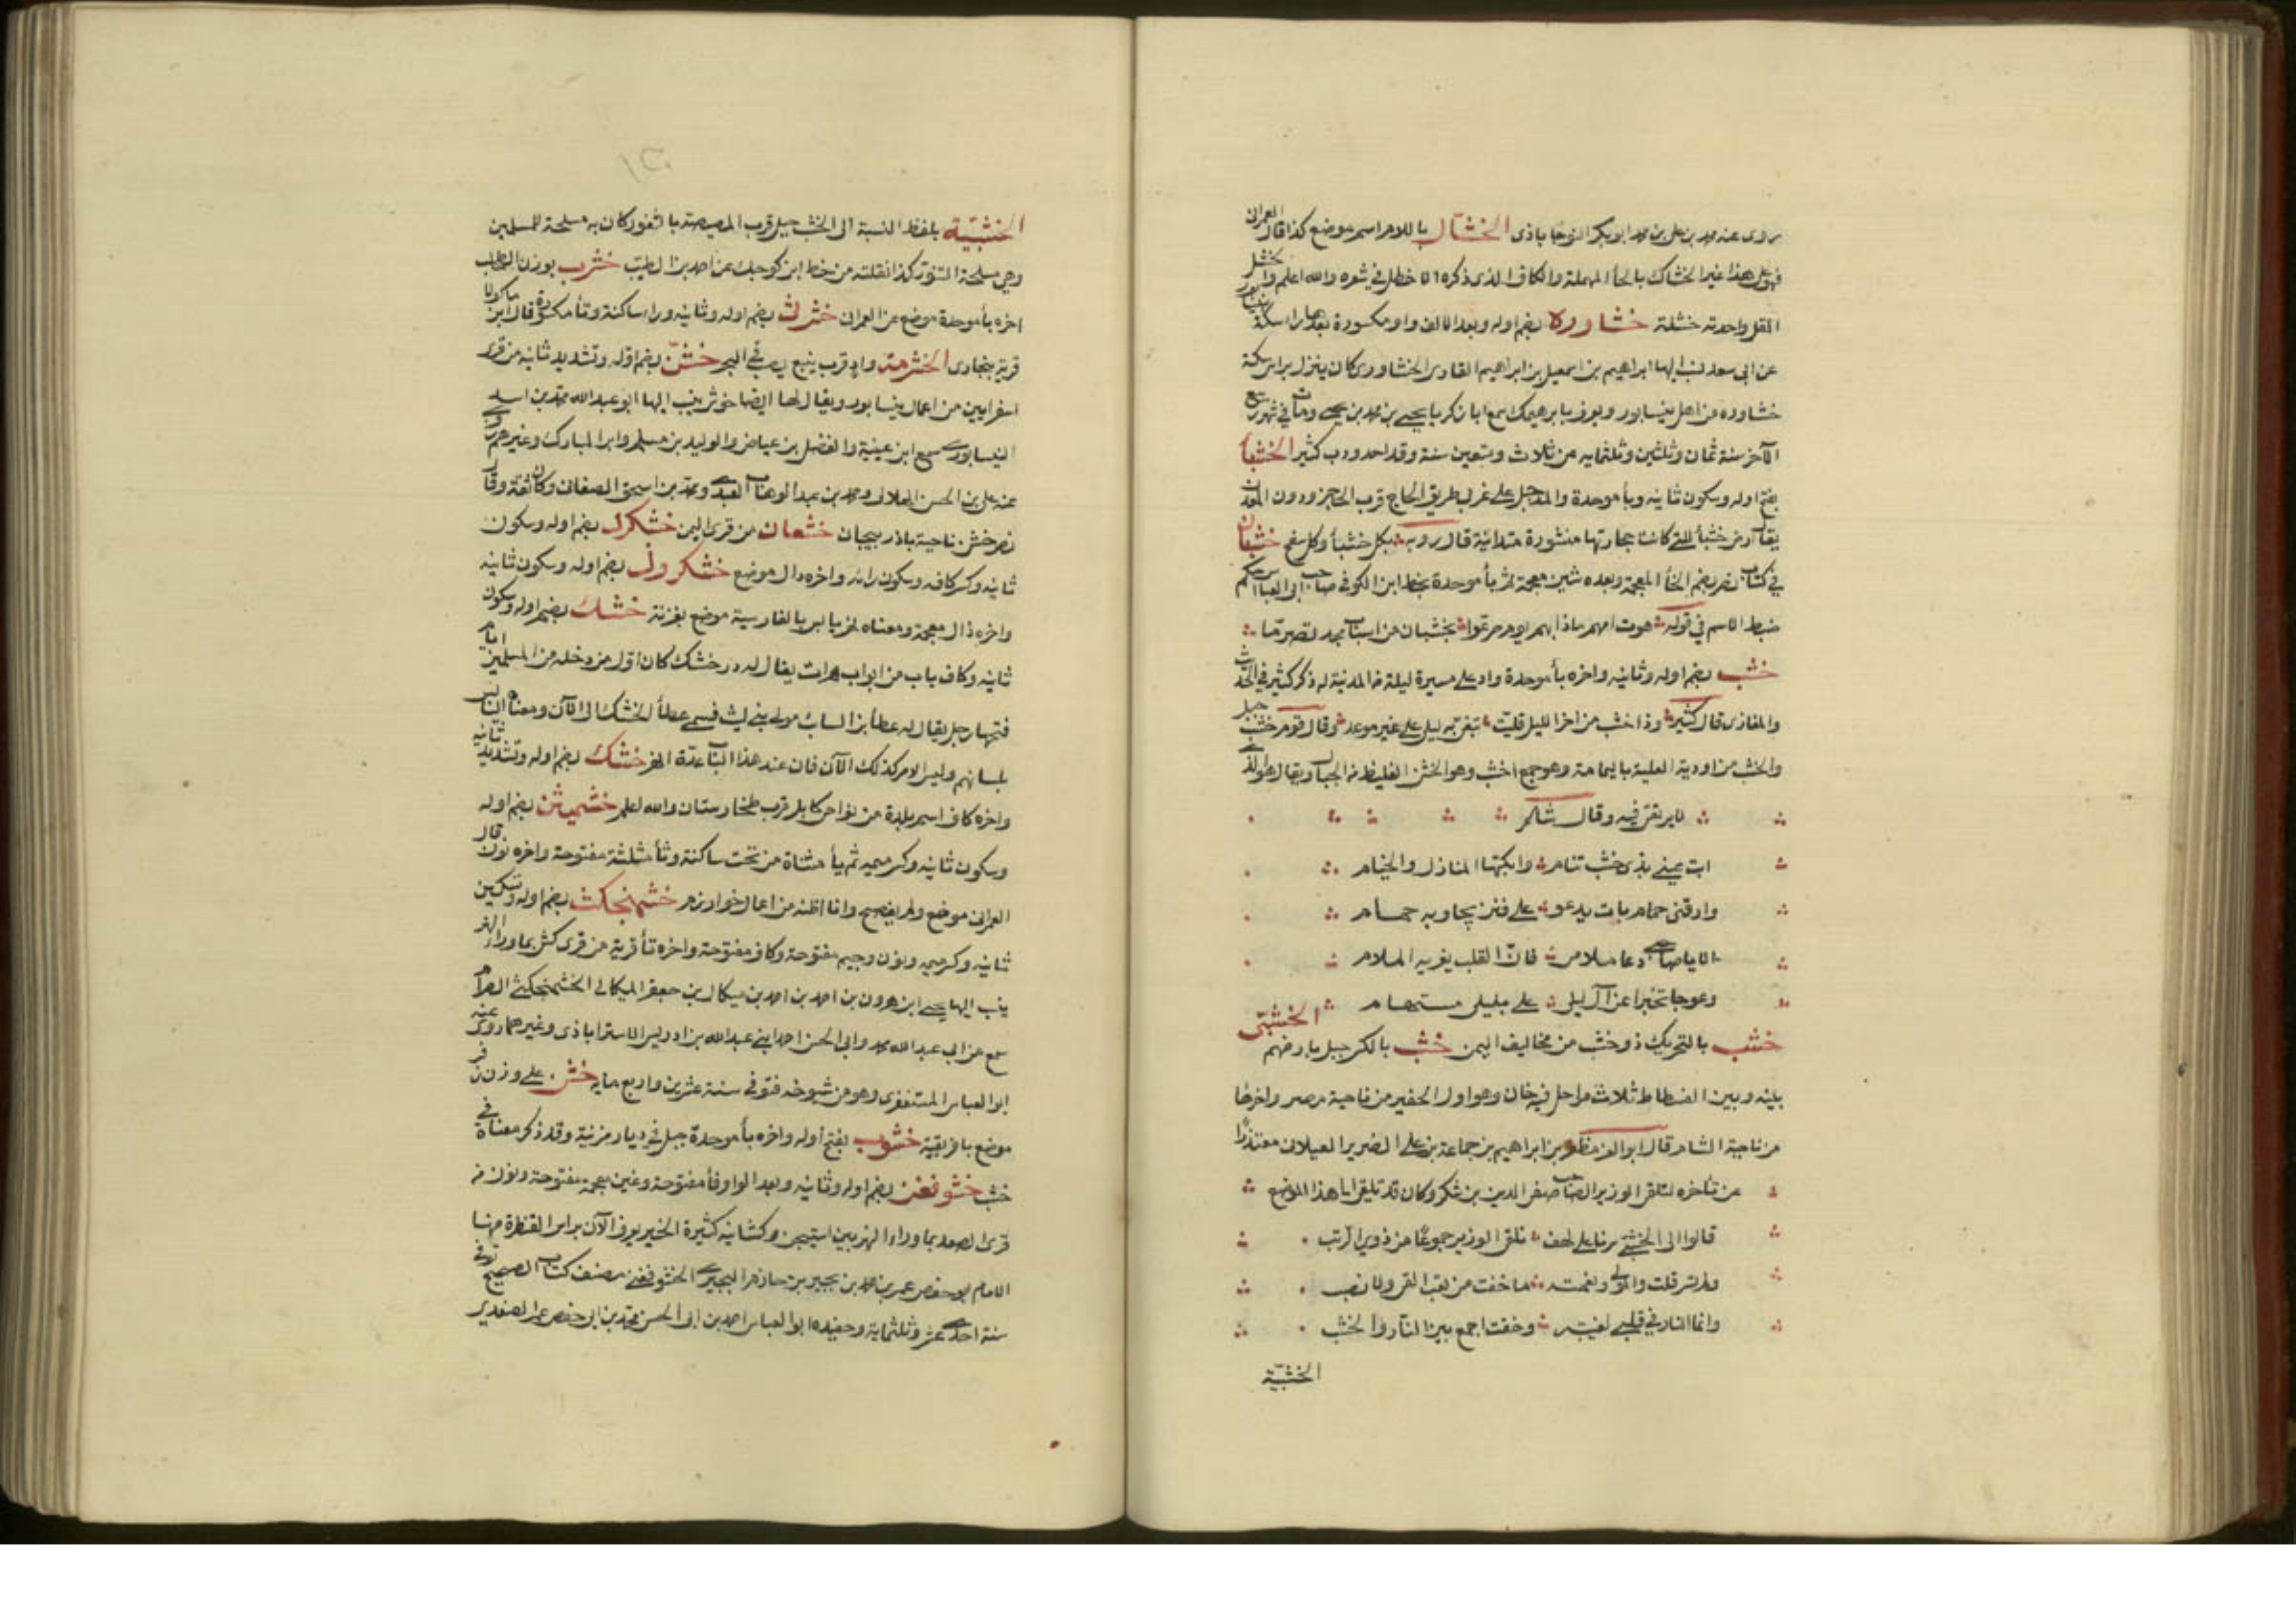 روى عنه محمد بن علي بن محمد ابو بكر النوجاباذي الخشال باللام اسم موضع كذا قال العمراني
فهو على هذا غير الخشاك بالحأ المهملة والكاف الذي ذكره الاخطل في شعره والله اعلم والخشل
المقل واحدته خشلة خشاوره بضم اوله وبعد الالف واو مكسورة بعدها را سكة
عن ابي سعد نسب اليها ابراهيم بن اسمعيل بن ابراهيم القارى الخشاورى كان ينزل براس سكة
خشاوره من اهل نيسابور ويعرف بابرهيمك سمع ابا زكريا يحيى بن محمد بن يحيى ومات في شهر ربيع
الآخر سنة ثمان وثلثين وثلثمايه عن ثلاث وتسعين سنة وقد احدودب كثيرا الخشبأ
بفتح اوله وسكون ثانيه وبأ موحدة والمد جبل على غربى طريق الحاج قرب الحاجز ودون المعدن
يقال ارض خشبأ للتي كانت حجارتها منثورة متدانية قال روبه بكل خشبأ وكل سفح خشبان
في كتاب نصر بضم الخأ المعجمة وبعده شين معجمة ثم بأ موحدة بخط ابن الكوفى صاحب ابى العباس محكم
ضبط الاسم في قوله هوت امهم ماذا بهم يوم صرعوا بخشبان من اسباب مجد تصرما
خشب بضم اوله وثانيه واخره بأ موحدة واد على مسيرة ليلة من المدينة له ذكر كثير في الحديث
والمغازى قال كثير وذا خشب من اخر الليل قلبت تبغى به ليلى على غير موعد وقال قوم خشب جبل
والخشب من اودية العلية باليمامة وهو جمع اخشب وهو الخشن الغليظ من الجبال ويقال هو الذي
لا يرتقى فيه وقال شاعر
ابت عيني بذى خشب تنام وابكتها المنازل والخيام
وارقنى حمام بات يدعو على فنن يجاوبه حمام
الا يا صاحبي دعا ملامى فان القلب يغريه الملام
وعوجا تخبرا عن آل ليلى على بليلى مستهام الخشبى
خشب بالتحريك ذو خشب من مخاليف اليمن خشب بالكسر جبل بارضهم
بينه وبين الفسطاط ثلاث مراحل فيه خان وهو اول الجفير من ناحية مصر واخرها
من ناحية الشام قال ابو العز مظفر بن ابراهيم بن جماعة بن على الضرير العيلاني معتذرا
من تاخره لتلقى الوزير الصاحب صفى الدين بن شكر وكان قد تلقى الى هذا الموضع
قالوا الى الخشبى سرنا على لهف نلقى الوزير جموعا من ذوى الرتب
ولم تسر قلت والمولى ونعمته ما خفت من تعب القى ولا نصب
وانما النار في قلبي لغيبته وخفت اجمع بين النار والخشب
الخشبية
الخشبية بلفظ النسبة الى الخشب جبل قرب المصيصة بالثغور كان به مسلحة للمسلمين
وهي مسلحة الثغور كذا نقلته من خط ابن كوجك عن احمد بن الطيب خشرب بوزن الطحلب
اخره بأ موحدة موضع عن العمرانى خشرت بضم اوله وثانيه ورا ساكنة وتأ مكسورة قال ابن ماكولا
قرية ببخارى الخشرمة واد قرب ينبع يصب في البحر خش بضم اوله وتشديد ثانيه من قرى
اسفرايين من اعمال نيسابور ويقال لها ايضا خوش ينسب اليها ابو عبد الله محمد بن اسد
النيسابورى سمع ابن عيينة والفضيل بن عياض والوليد بن مسلم وابن المبارك وغيرهم روى
عنه على بن الحسن الهلالى ومحمد بن عبد الوهاب العبدى ومحمد بن اسحق الصغانى وكان ثقة وقال
نصر خش ناحية باذربيجان خشعان من قرى اليمن خشكرد بضم اوله وسكون
ثانيه وكسر كافه وسكون رائه واخره دال موضع خشكروذ بضم اوله وسكون ثانيه
واخره ذال معجمة ومعناه نهر يابس بالفارسية موضع بغزنة خشك بضم اوله وسكون
ثانيه وكاف باب من ابواب هراة يقال له در خشك كان اول من دخله من المسلمين ايام
فتحها رجل يقال له عطأ بن السائب مولى بنى ليث فسمى عطأ الخشك الى الآن ومعناه اليابس
بلسانهم وليس الامر كذلك الآن فان عند هذا الباب عدة انهر خشك بضم اوله وتشديد ثانيه
واخره كاف اسم بلدة من نواحى كابل قرب طخارستان والله اعلم خشميثن بضم اوله
وسكون ثانيه وكسر ميمه ثم يأ مثناة من تحت ساكنة وثأ مثلثة مفتوحة واخره نون قال
العمرانى موضع ولم يفصح وانا اظنه من اعمال خوارزم خشمنجكث بضم اوله وتسكين
ثانيه وكسر ميمه ونون وجيم مفتوحة وكاف مفتوحة واخره ثأ قرية من قرى كش بما ورأ النهر
ينسب اليها يحيى بن هرون بن احمد بن احمد بن ميكال بن جعفر الميكالى الخشمنجكثى الصرام
سمع من ابى عبد الله محمد وابى الحسن احمد ابنى عبد الله بن ادريس الاستراباذى وغيرهما روى عنه
ابو العباس المستغفرى وهو من شيوخه توفى في سنة عشرين واربع مايه خشن على وزن زفر
موضع بافريقية خشوب بفتح اوله واخره بأ موحدة جبل في ديار مزينة وقد ذكر معناه في
خشب خشوفغن بضم اوله وثانيه وبعد الواو فأ مفتوحة وغين معجمة مفتوحة ونون من
قرى الصغد بما ورأ النهر بين اشتيخن وكشانيه كثيرة الخير يعرف الآن براس القنطرة منها
الامام ابو حفص عمر بن محمد بن بجير بن حازم البجيرى الخشوفغنى مصنف كتاب الصحيح توفى
سنة احدى عشر وثلثماية وحفيده ابو العباس احمد بن ابى الحسن محمد بن ابى حفص عمر الصغدى